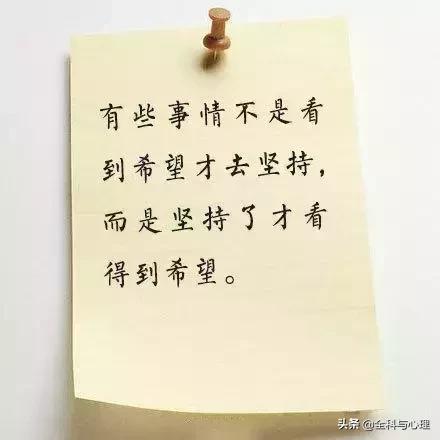 有些事情不是看
到希望才去坚持，
而是坚持了才看
得到希望。
头条 @全科与心理